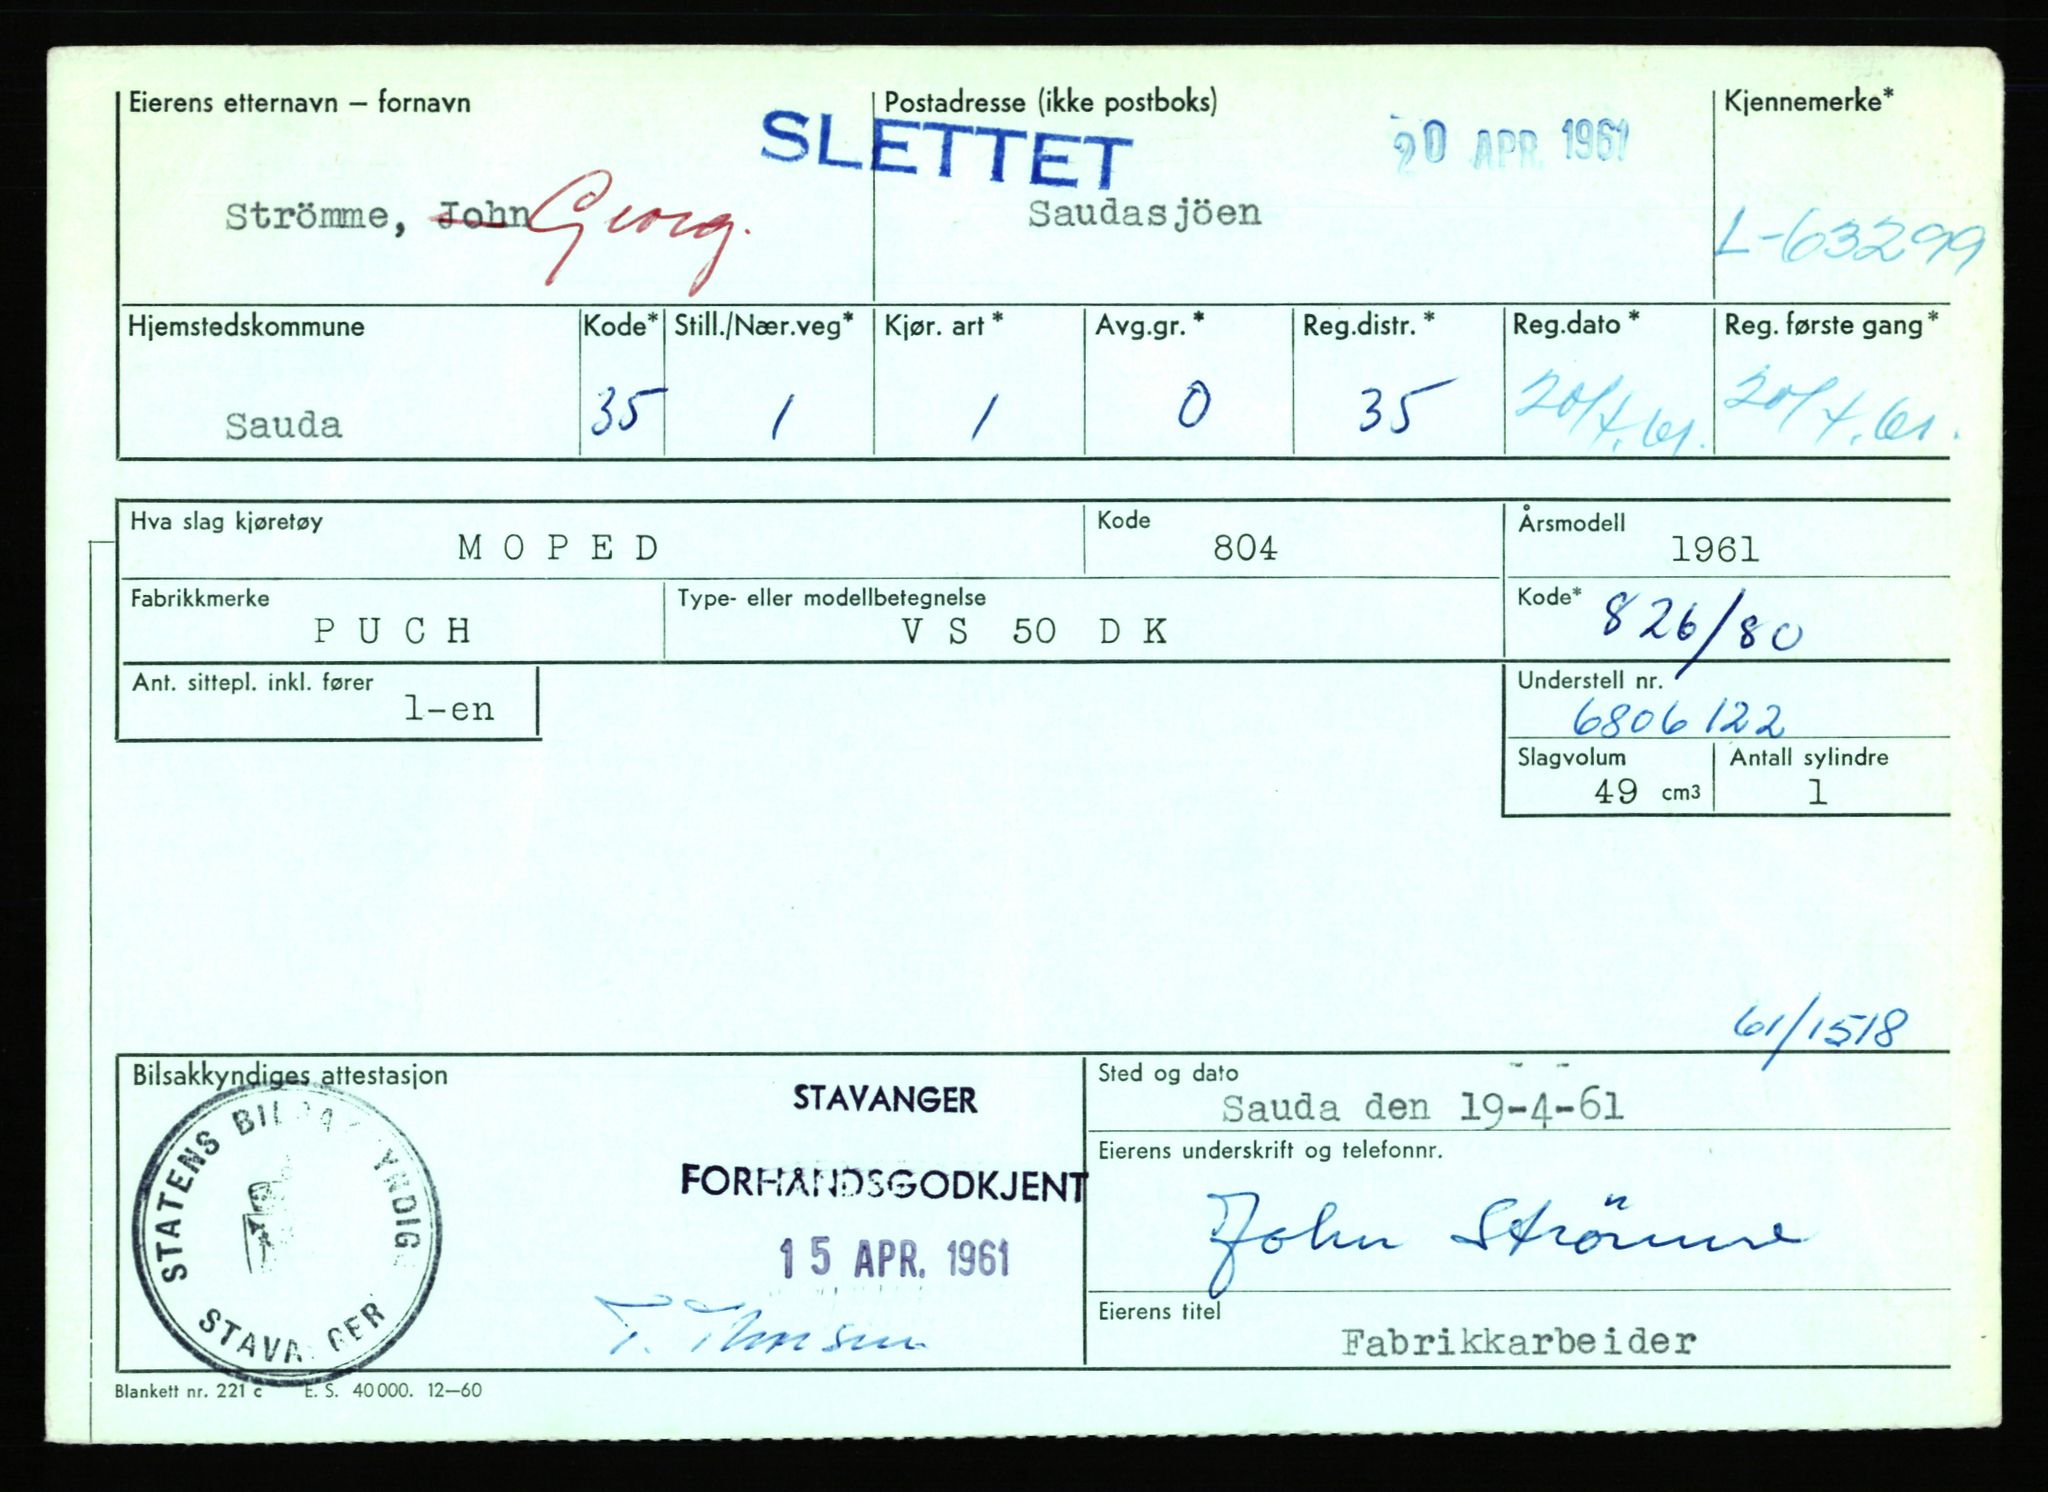 Eierens etternavn – fornavn
Postadresse (ikke postboks)
Kjennemerke*
SLETTET
20 APR. 1961
Strömme, John Georg.
Saudasjöen
L-63299
Hjemstedskommune Kode* Still./Nær.veg* Kjør. art* Avg.gr.* Reg.distr.* Reg.dato* Reg. første gang*
Sauda 35 1 1 0 35 20/4.61. 20/4.61.
Hva slag kjøretøy Kode Årsmodell
M O P E D 804 1961
Fabrikkmerke Type- eller modellbetegnelse Kode*
P U C H V S 50 D K 826/80
Ant. sittepl. inkl. fører Understell nr.
1-en 6806122
Slagvolum Antall sylindre
49 cm3 1
61/1518
Bilsakkyndiges attestasjon
STATENS BILSAKKYNDIGE
STAVANGER
STAVANGER
FORHANDSGODKJENT
15 APR. 1961
Sted og dato
Sauda den 19-4-61
Eierens underskrift og telefonnr.
John Strömme
Eierens titel
Fabrikkarbeider
Blankett nr. 221 c E. S. 40000. 12–60